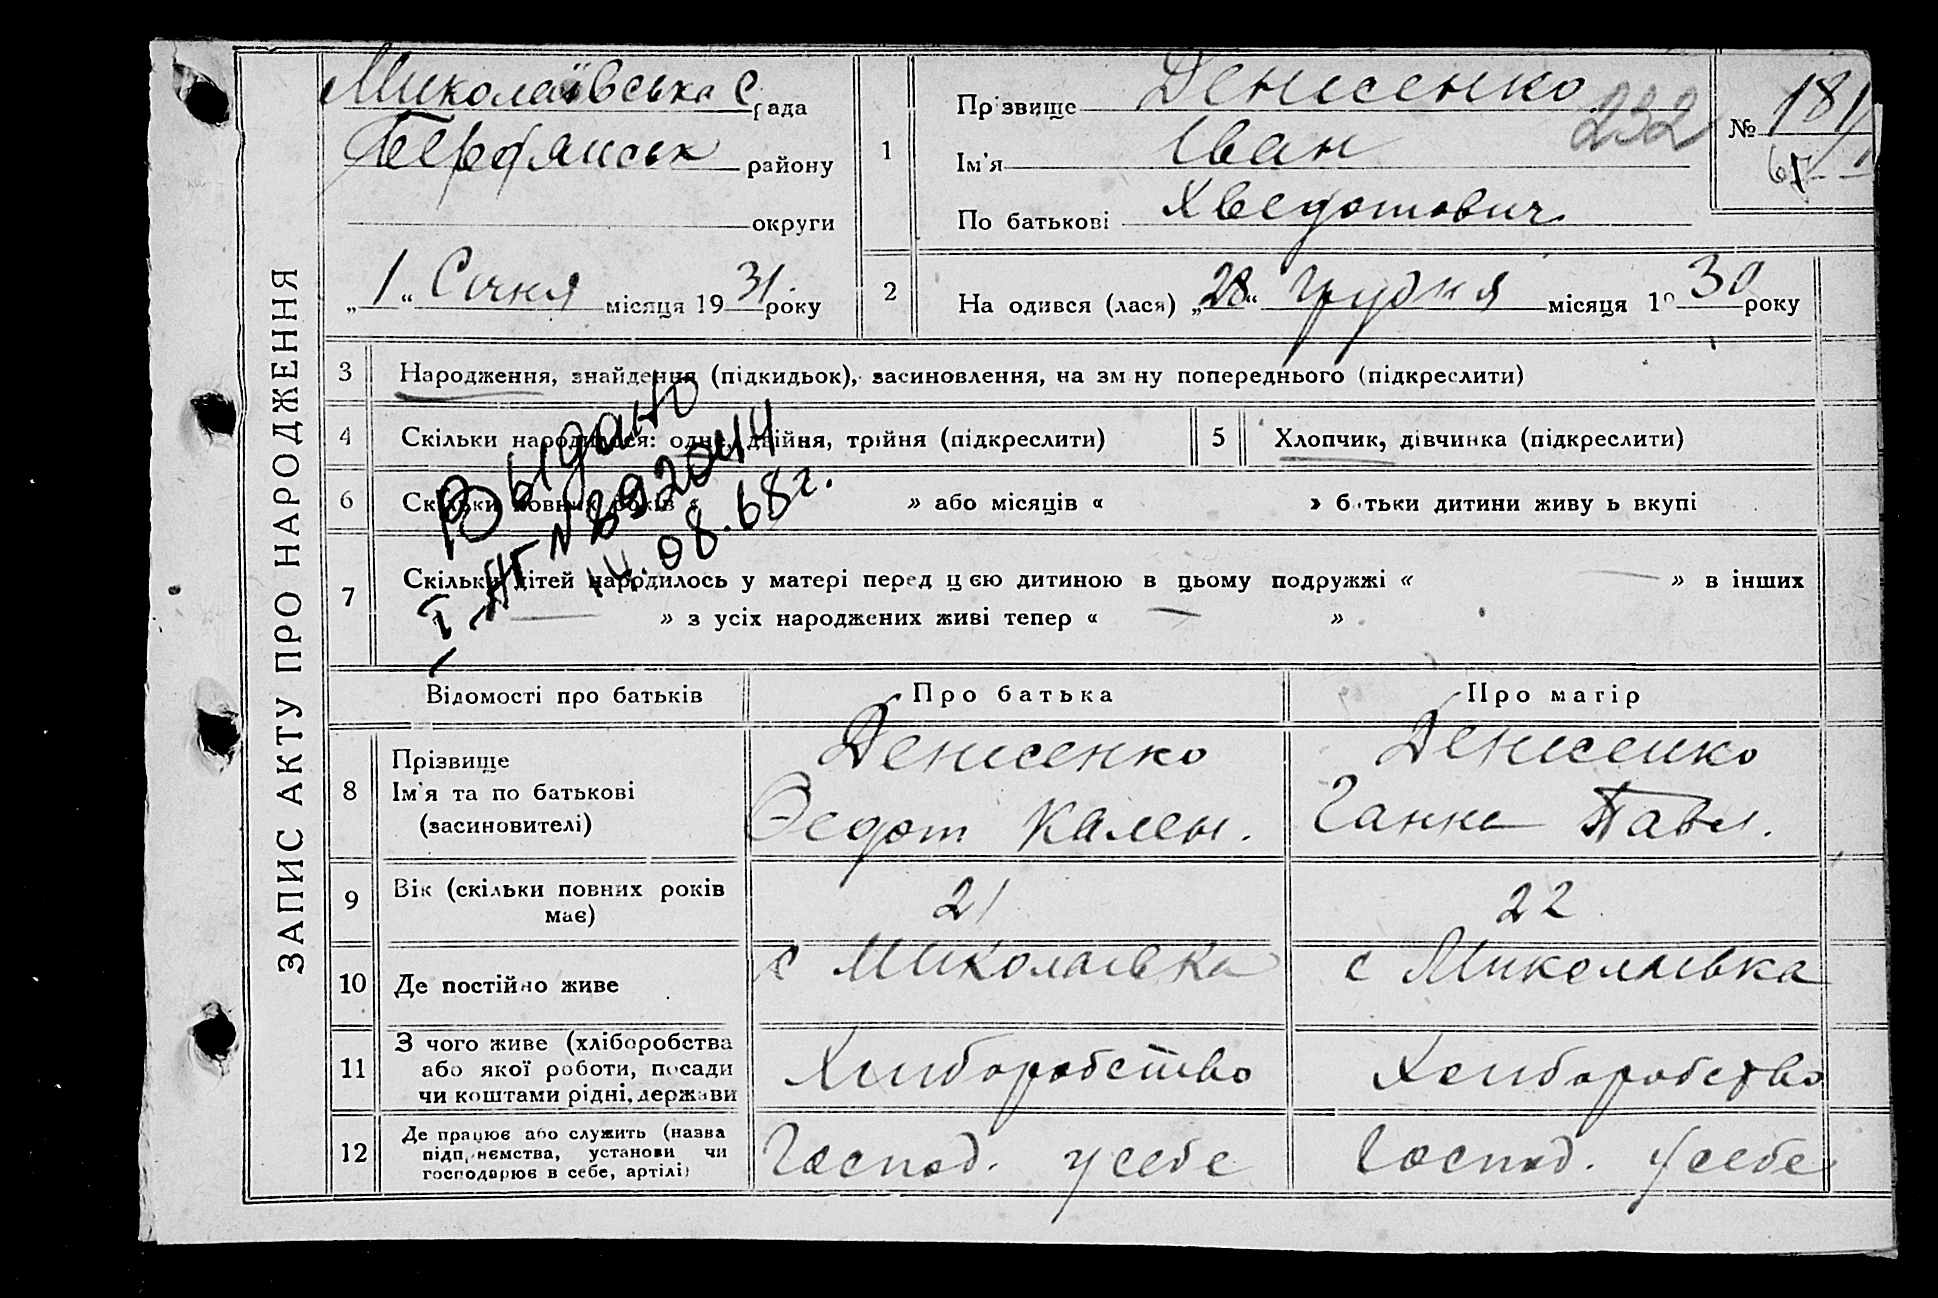 ЗАПИС АКТУ ПРО НАРОДЖЕННЯ
Миколаївська С рада
Бердянськ району
округи
„ 1 “ Січня місяця 19 31. року
1
Прізвище Денисенко
232
Ім'я Іван
По батькові Хведотович
№ 181/1
67
2
На одився (лася) „ 28 “ грудня місяця 19 30 року
3 Народження, знайдення (підкидьок), засиновлення, на зм ну попереднього (підкреслити)
4 Скільки народилося: одне, двійня, трійня (підкреслити)
5 Хлопчик, дівчинка (підкреслити)
6 Скільки повних років « » або місяців « » б тьки дитини живу ь вкупі
7 Скільки дітей народилось у матері перед ц єю дитиною в цьому подружжі « — » в інших
— » з усіх народжених живі тепер « — » .
Выдано
I-ЯГ №892044
14.08.68г.
Відомості про батьків
Про батька
Про матір
8
Прізвище
Ім'я та по батькові
(засиновителі)
Денисенко
Федот Калень.
Денисенко
Ганна Павл.
9
Вік (скільки повних років
має)
21
22
10 Де постійно живе
с Миколаївка
с Миколаївка
11
З чого живе (хліборобства
або якої роботи, посади
чи коштами рідні, держави
Хлиборобство
Хлиборобство
12
Де працює або служить (назва
підп ємства, установи чи
господарює в себе, артілі)
Господ. у себе
Господ. у себе